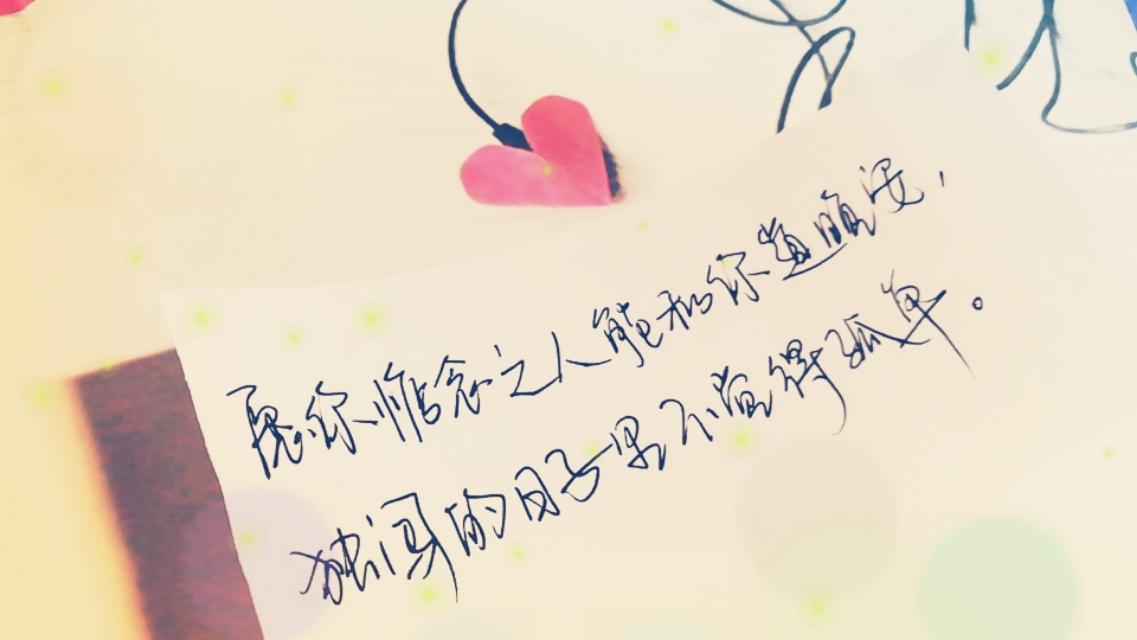 愿你惦念之人能和你道晚安，
独闯的日子里不觉得孤单。